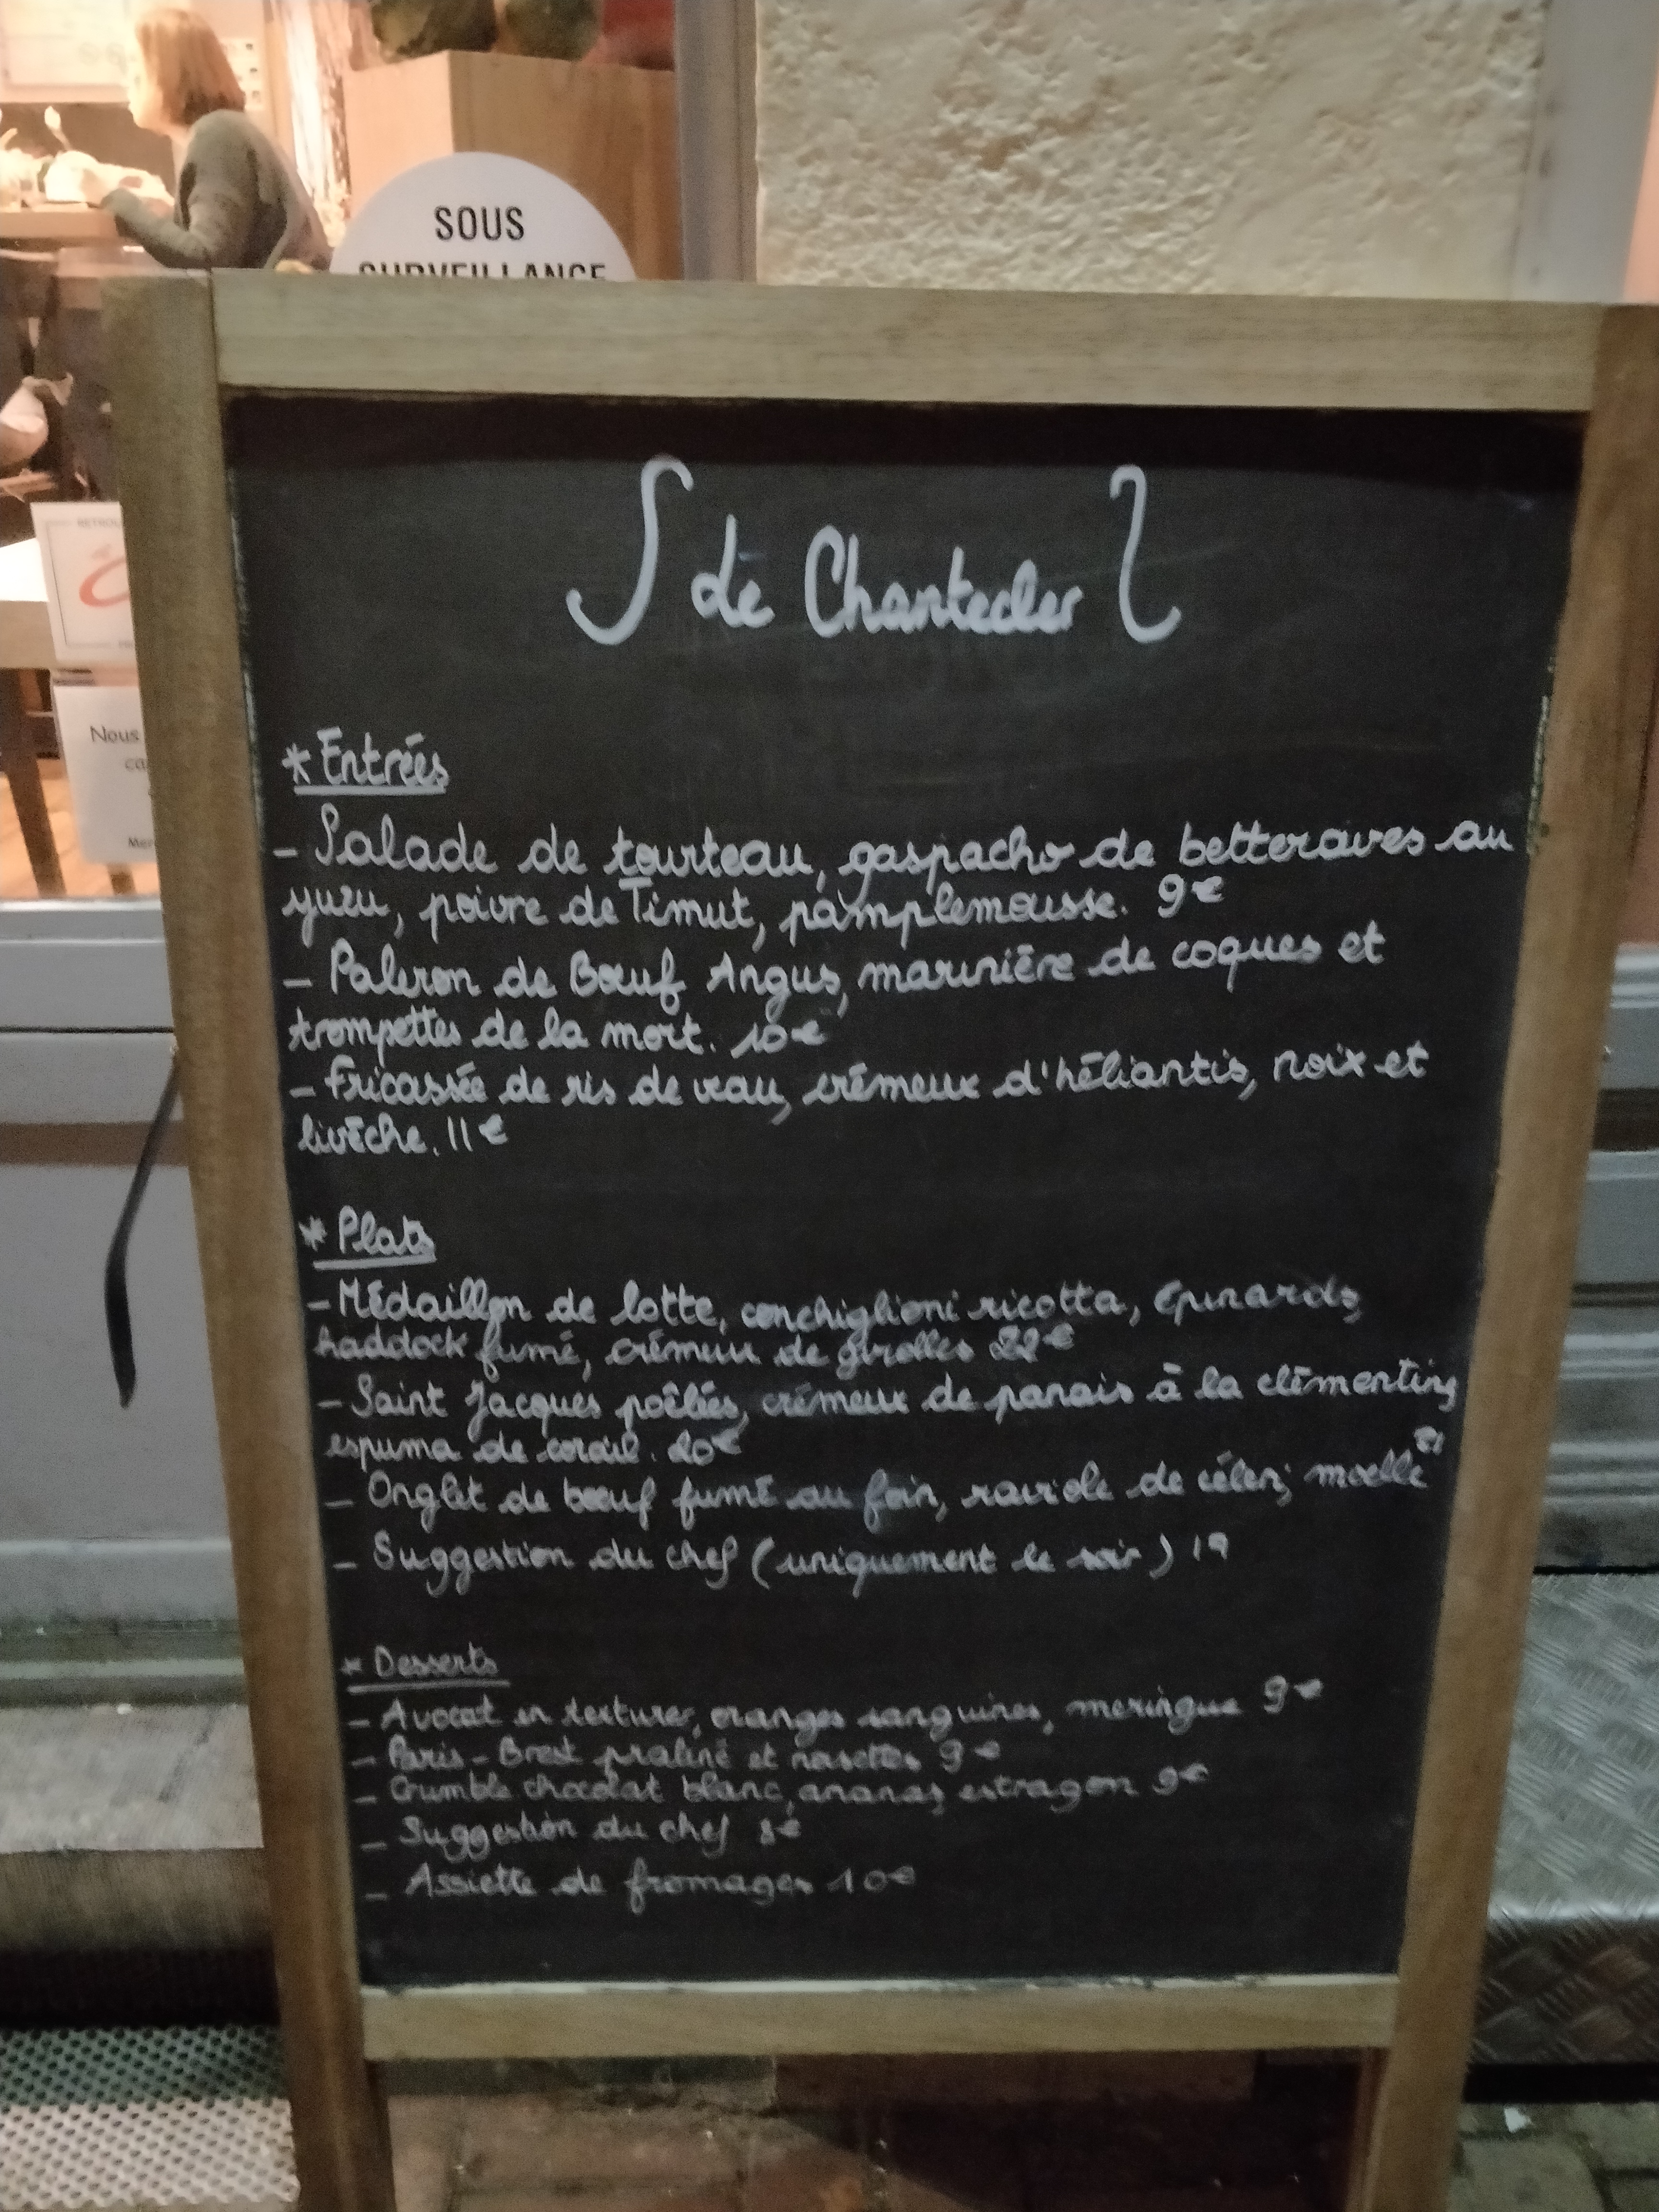 SOUS
SURVEILLANCE
Le Chantecler
* Entrées
- Salade de tourteau, gaspacho de betteraves au
yuzu, poivre de Timut, pamplemousse. 9€
- Paleron de Bœuf Angus, marinière de coques et
trompettes de la mort. 10€
- Fricassée de ris de veau, crémeux d'héliantis, noix et
livèche. 11€
* Plats
- Médaillon de lotte, conchiglioni ricotta, épinards,
haddock fumé, crémeux de girolles 22€
- Saint Jacques poêlées, crémeux de panais à la clémentine,
espuma de corail. 20€
- Onglet de bœuf fumé au foin, raviole de céleri, moelle 21
- Suggestion du chef (uniquement le soir) 19
* Desserts
- Avocat en textures, oranges sanguines, meringue 9€
- Paris-Brest praliné et noisettes 9€
- Crumble chocolat blanc, ananas, estragon 9€
- Suggestion du chef 8€
- Assiette de fromages 10€
Nous
ca
Mer